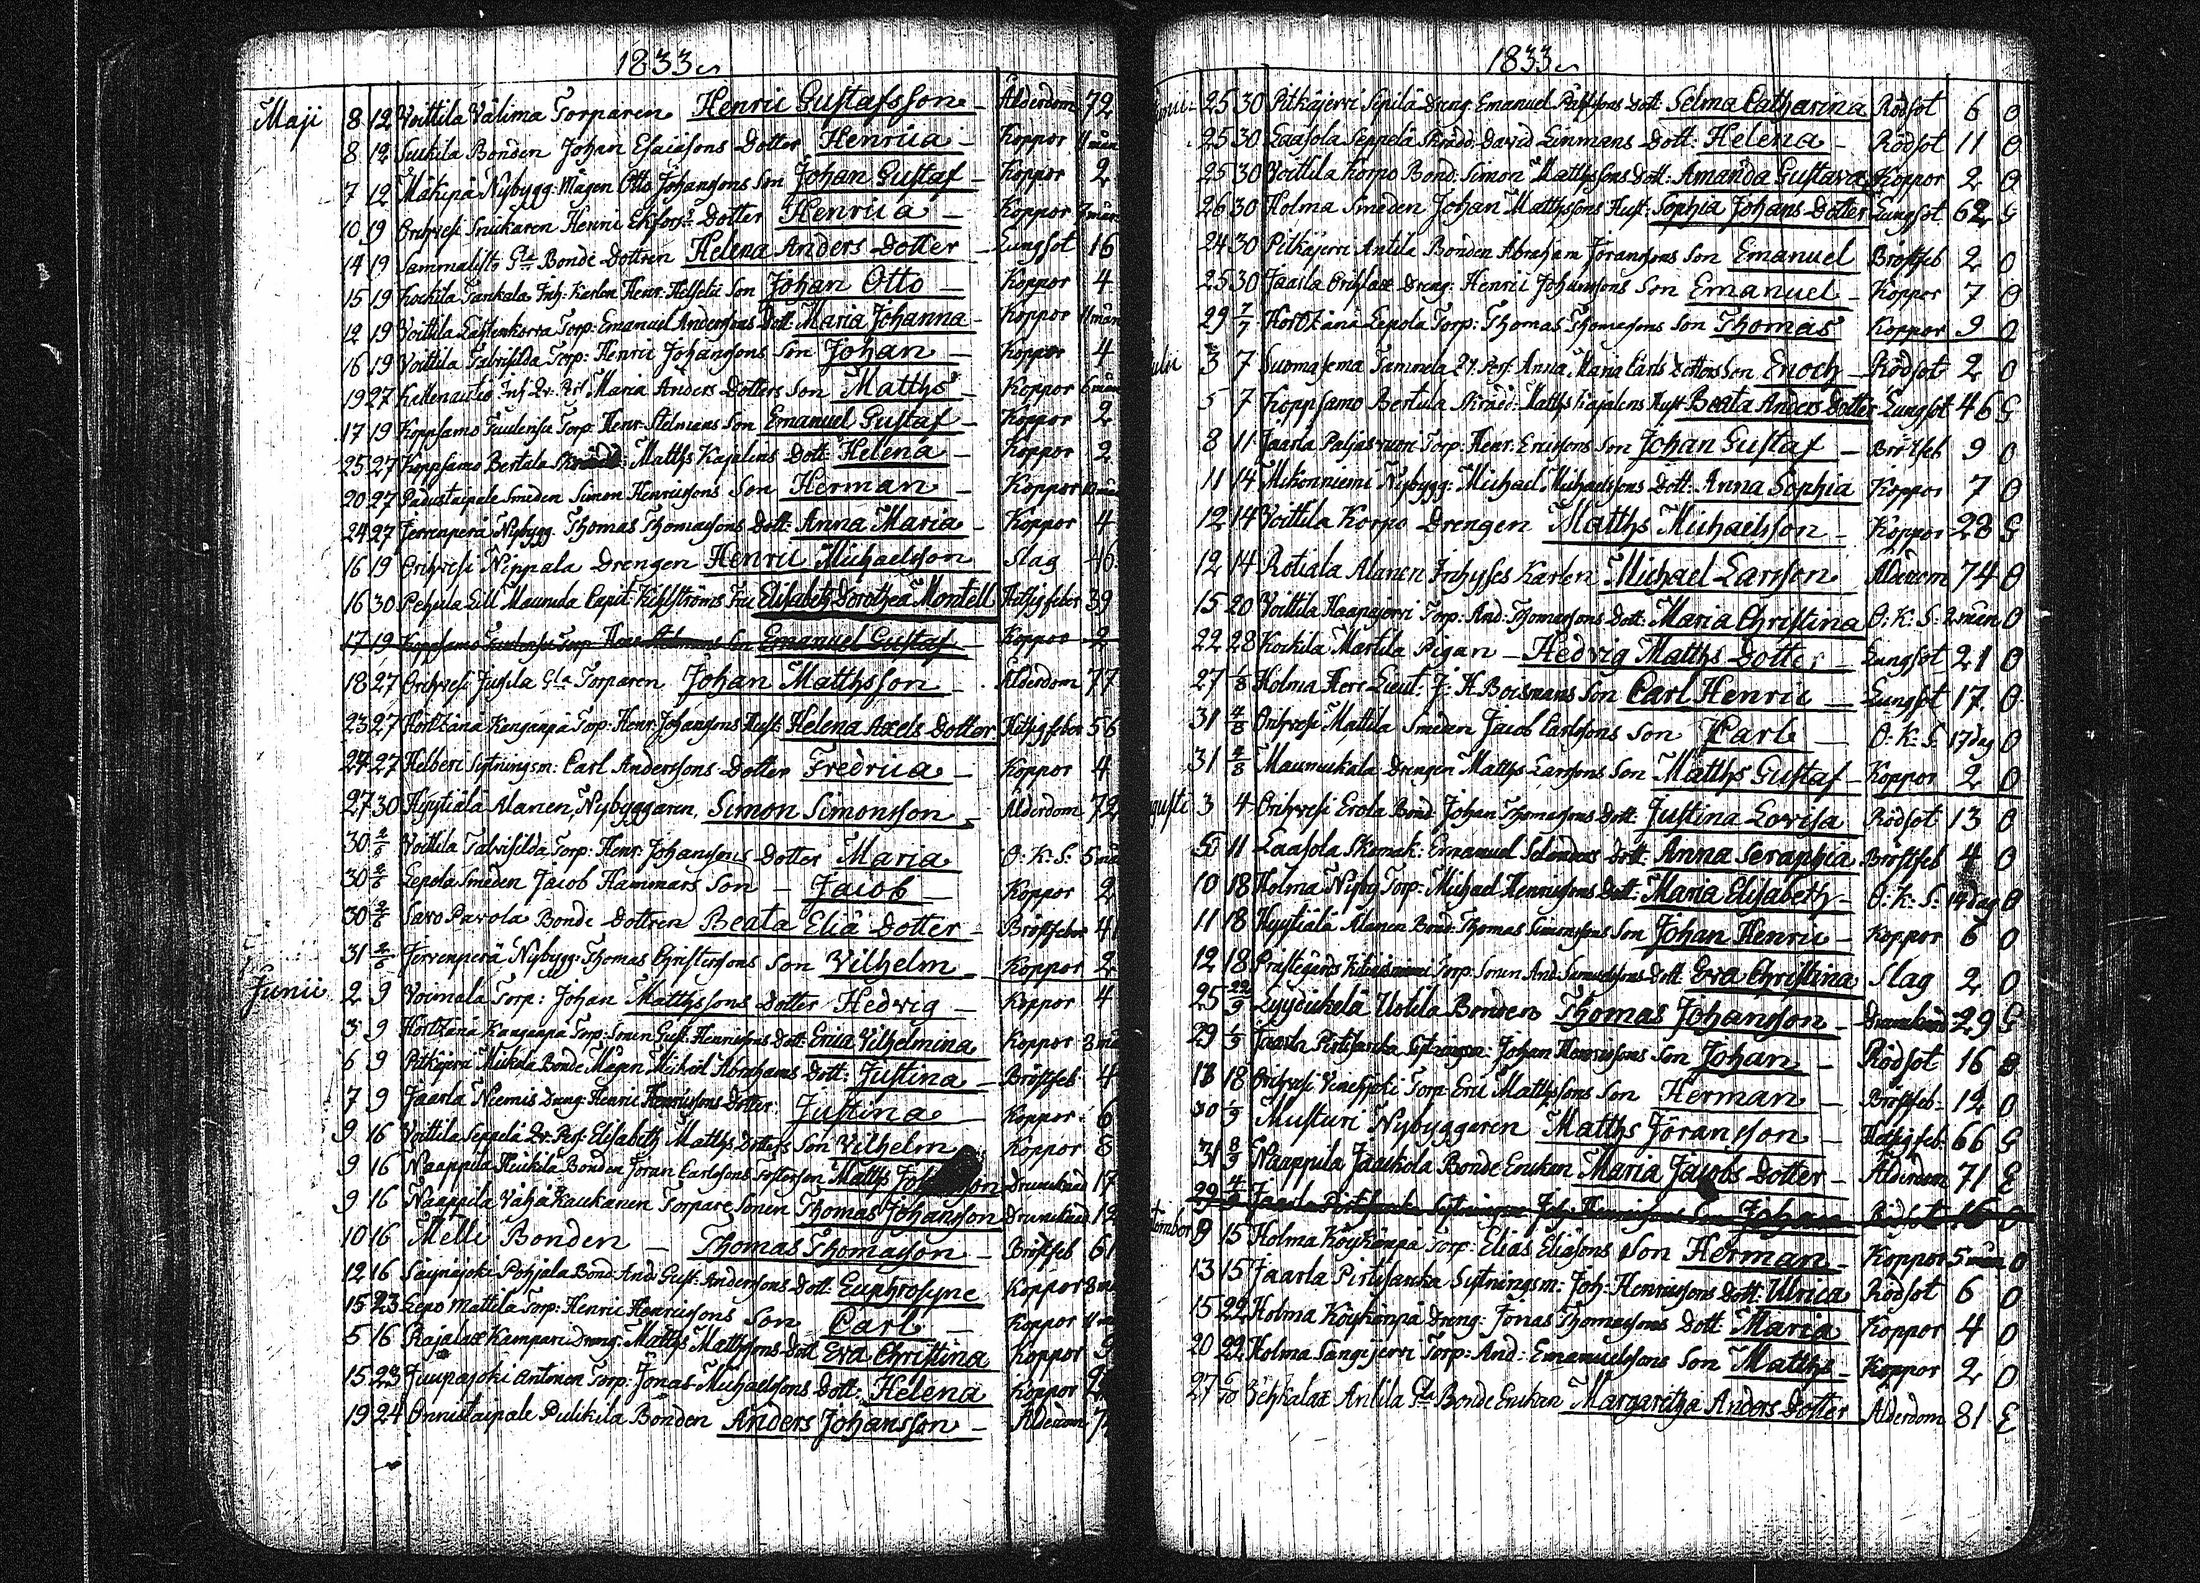 1833
Maji 8 12 Voittila Välima Torparen Henric Gustafsson Ålderdom 72
8 12 Bonden Johan Esaiæsons Dotter Henrica Koppor 11 mån
7 12 Mäkipä Nybygg: Mågen Otto Johanssons Son Johan Gustaf Koppor 2
10 19 Orihvesi Snickaren Henric Dotter Henrica Koppor
14 19 Sammalisto Gla Bonde Dottren Helena Anders Dotter Lungsot 16
15 19 Inh: Karlen Henr: Son Johan Otto Koppor 4
12 19 Voittila Torp: Emanuel Anderssons Dott: Maria Johanna Koppor 11 mån
16 19 Voittila Torp: Henric Johanssons Son Johan Koppor 4
19 27 Inh Qv: Pers Maria Anders Dotters Son Matths Koppor 6 mån
17 19 Koppsamo Torp: Henr: Son Emanuel Gustaf Koppor 2
25 27 Koppsamo Bertula Matths Kajalens Dott: Helena Koppor 2
20 27 Padustaipale Smeden Simon Henricssons Son Herman Koppor
24 27 Jervenperä Nybygg. Thomas Thomassons Dott: Anna Maria Koppor 4
16 19 Orihvesi Nippala Drengen Henric Michaelsson Slag 46
16 30 Pehula Lill Maunula Capit: Fru Elisabeth Dorothea Montell Hetsigfeber 39
17 19 Koppsamo Torp Son Emanuel Gustaf Koppor 2
18 27 Orihvesi Jussila Gla Torparen Johan Matthsson Ålderdom 77
23 27 Torp: Henr: Johanssons Hust: Helena Axels Dotter Hetsigfeber 56
27 Sytningsm: Carl Anderssons Dotter Fredrica Koppor 4
27 30 Hyytiälä Alanen, Nybyggaren, Simon Simonsson Ålderdom 72
30 2/6 Voittila Torp: Henr: Johanssons Dotter Maria O: K: S: 5
30 2/6 Lepola Smeden Jacob Hammars Son Jacob Koppor 2
30 2/6 Savo Parola Bonde Dottren Beata Eliæ Dotter Bröstfeber 41
31 2/6 Jervenperä Nybygg: Thomas Son Vilhelm Koppor 2
Junii 2 9 Voimala Torp: Johan Matthssons Dotter Hedvig Koppor 4
3 9 Torp: Sonen Gust: Henricssons Dott: Erica Vilhelmina Koppor 8
6 9 Pitkäjerri Mikkola Bonde Mågen Michael Abrahams Dott: Justina Bröstfeb: 4
7 9 Jaarla Niemis Dreng: Henric Henricssons Dotter Justina Koppor 6
9 16 Voittila Seppelä Qv: Pers: Elisabeth Matths Dotters Son Vilhelm Koppor 8
9 16 Naappila Heikkila Bonden Jöran Carlssons Matths Drunknad 17
9 16 Naappila Vähä Kaukanen Torpare Sonen Thomas Johansson Drunknad 12
10 16 Melli Bonden Thomas Thomasson Bröstfeb 61
12 16 Pohjala Bond: And: Gust: Anderssons Dott: Euphrosyne Koppor 8
15 23 Lepo Mattila Torp: Henric Henricssons Son Carl Koppor
5 16 Kampari Dreng: Matths Matthssons Dott Eva Christina Koppor 9
15 23 Juupajoki Antonen Torp: Jonas Michaelssons Dott: Helena Koppor
19 24 Onnistaipale Bonden Anders Johansson Ålderdom
1833
25 30 Pitkäjerri Seppälä Dreng Emanuel Dott: Selma Catharina Rödsot 6 O
25 30 Laasola Seppelä Skrädd: David Linmans Dott: Helena Rödsot 11 O
25 30 Voittila Korpo Bond: Simon Matthssons Dott: Amanda Gustava Koppor 2 O
26 30 Holma Smeden Johan Matthssons Hust: Sophia Johans Dotter Lungsot 62 G
24 30 Pitkäjerri Antila Bonden Abraham Jöranssons Son Emanuel Bröstfeb 2 O
25 30 Jaarla Dreng: Henric Johanssons Son Emanuel Koppor 7 O
29 7/7 Lepola Torp: Thomas Thomassons Son Thomas Koppor 9 O
3 7 Suomasema Tammela Qv: Pers: Anna Maria Carls Dotters Son Enoch Rödsot 2 O
5 7 Koppsamo Bertula Skrädd: Matths Kajalens Hust: Beata Anders Dotter Lungsot 46 G
8 11 Jaarla Paljasvuori Torp: Henr: Ericssons Son Johan Gustaf Bröstfeb 9 O
11 14 Mikonniemi Nybygg: Michael Michaelssons Dott: Anna Sophia Koppor 7 O
12 14 Voittila Korpo Drengen Matths Michaelsson Koppor 28 G
12 14 Rotiala Alanen Inhyses Karlen Michael Larsson Ålderdom 74 O
15 20 Voittila Haapajerri Torp: And: Thomassons Dott: Maria Christina O: K: S: 2 mån O
22 28 Kockila Martila Pigan Hedvig Matths Dotter Lungsot 21 O
27 1/8 Holma Herr Lieut: J: H Boismans Son Carl Henric Lungsot 17 O
31 4/8 Orihvesi Mattila Smeden Jacob Carlssons Son Carl O: K: S: 17 dag O
31 4/8 Maunukala Drengen Matths Larssons Son Matths Gustaf Koppor 2 O
3 4 Orihvesi Erola Bond Johan Thomassons Dott: Justina Lovisa Rödsot 13 O
5 11 Laasola Skomak: Emanuel Dott: Anna Seraphia Bröstfeb 4 O
10 18 Holma Nisby Torp: Michael Henricssons Dott: Maria Elisabeth O: K: S: 14 dag O
11 18 Hyytiälä Alanen Bond: Thomas Simonssons Son Johan Henric Koppor 6 O
12 18 Prästegårds Torp: Sonen And: Samuelssons Dott Eva Christina Slag 2 O
25 Uotila Bonden Thomas Johansson 29 G
29 1/9 Jaarla Pirttisarcka Sytningsm: Johan Henricssons Son Johan Rödsot 16
18 Orihvesi Torp: Eric Matthssons Son Herman Bröstfeb 12 O
30 1/9 Musturi Nybyggaren Matths Jöransson Hetsigfeb: 66 G
31 8/9 Naappila Jaackola Bonde Enckan Maria Jacobs Dotter Ålderdom 71 E
29 Jaarla Pirttisarcka Sytningsm Joh: Henricssons Son Johan Rödsot 16 O
9 15 Holma Köyhänpä Torp: Elias Eliæsons Son Herman Koppor 5 mån O
13 15 Jaarla Pirttisarcka Sytningsm: Joh: Henricssons Dott: Ulrica Rödsot 6 O
15 22 Holma Köyhänpä Dreng: Jonas Thomassons Dott Maria Koppor 4 O
20 22 Holma Torp: And: Emanuelssons Son Matths Koppor 2 O
27 6/10 Antila Gla Bonde Enckan Margaretha Anders Dotter Ålderdom 81 E